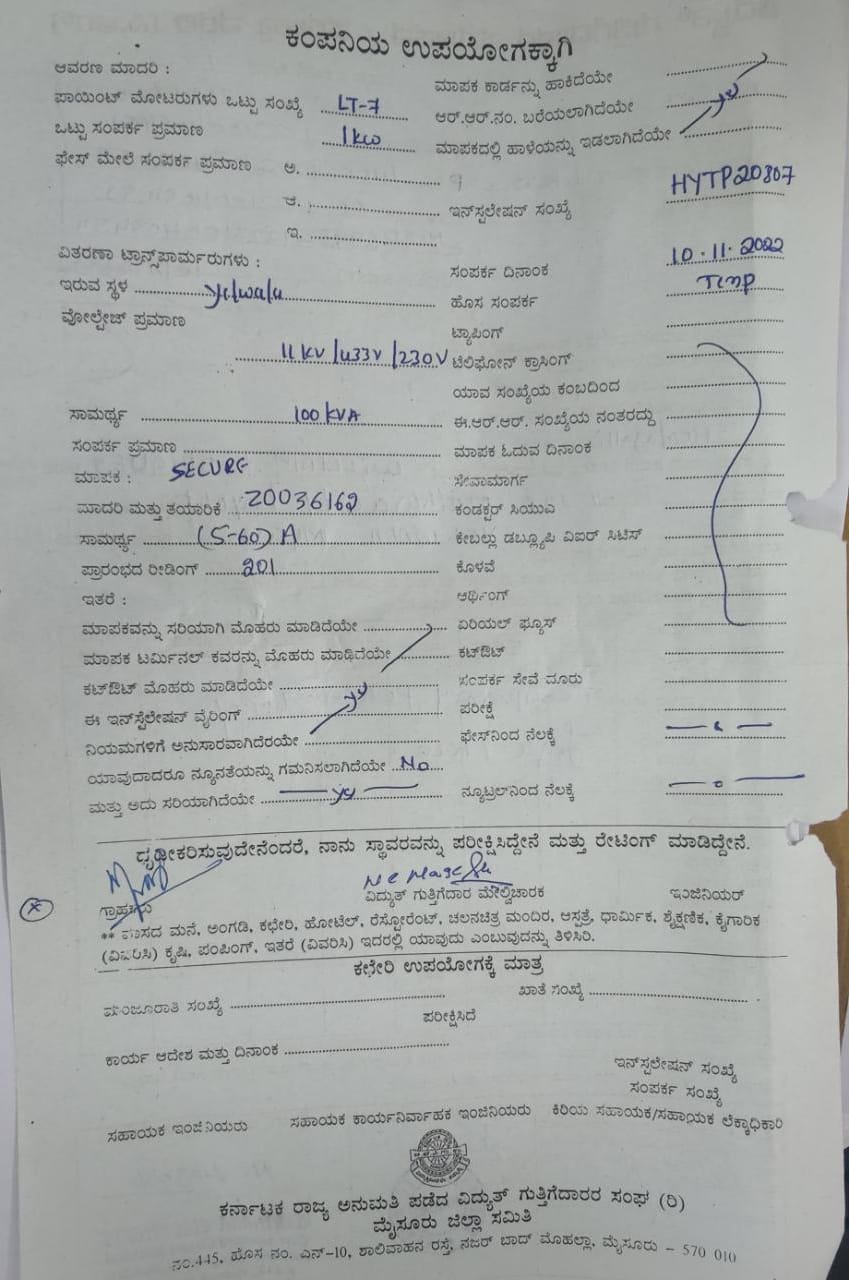 ಕಂಪನಿಯ ಉಪಯೋಗಕ್ಕಾಗಿ
ಆವರಣ ಮಾದರಿ :
ಮಾಪಕ ಕಾರ್ಡನ್ನು ಹಾಕಿದೆಯೇ
ಪಾಯಿಂಟ್ ಮೋಟರುಗಳು ಒಟ್ಟು ಸಂಖ್ಯೆ LT-7
ಆರ್.ಆರ್.ನಂ. ಬರೆಯಲಾಗಿದೆಯೇ
ಒಟ್ಟು ಸಂಪರ್ಕ ಪ್ರಮಾಣ 1 kw
ಮಾಪಕದಲ್ಲಿ ಹಾಳೆಯನ್ನು ಇಡಲಾಗಿದೆಯೇ
ಫೇಸ್ ಮೇಲೆ ಸಂಪರ್ಕ ಪ್ರಮಾಣ ಅ.
ಆ.
ಇನ್‌ಸ್ಟಲೇಷನ್ ಸಂಖ್ಯೆ HYTP20807
ಇ.
ವಿತರಣಾ ಟ್ರಾನ್ಸ್‌ಪಾರ್ಮರುಗಳು :
ಸಂಪರ್ಕ ದಿನಾಂಕ 10.11.2022
ಇರುವ ಸ್ಥಳ Yelwala
ಹೊಸ ಸಂಪರ್ಕ Temp
ವೋಲ್ಟೇಜ್ ಪ್ರಮಾಣ
ಟ್ಯಾಪಿಂಗ್
11 KV/433V/230V
ಟೆಲಿಫೋನ್ ಕ್ರಾಸಿಂಗ್
ಯಾವ ಸಂಖ್ಯೆಯ ಕಂಬದಿಂದ
ಸಾಮರ್ಥ್ಯ 100 KVA
ಈ.ಆರ್.ಆರ್. ಸಂಖ್ಯೆಯ ನಂತರದ್ದು
ಸಂಪರ್ಕ ಪ್ರಮಾಣ
ಮಾಪಕ ಓದುವ ದಿನಾಂಕ
ಮಾಪಕ : SECURE
ಸೇವಾಮಾರ್ಗ
ಮಾದರಿ ಮತ್ತು ತಯಾರಿಕೆ 20036162
ಕಂಡಕ್ಟರ್ ಸಿಯುಎ
ಸಾಮರ್ಥ್ಯ (5-60) A
ಕೇಬಲ್ಲು ಡಬ್ಲ್ಯೂಪಿ ವಿಐರ್ ಸಿಟಿಸ್
ಪ್ರಾರಂಭದ ರೀಡಿಂಗ್ 201
ಕೊಳವೆ
ಇತರೆ :
ಆರ್ಥಿಂಗ್
ಮಾಪಕವನ್ನು ಸರಿಯಾಗಿ ಮೊಹರು ಮಾಡಿದೆಯೇ
ಏರಿಯಲ್ ಫ್ಯೂಸ್
ಮಾಪಕ ಟರ್ಮಿನಲ್ ಕವರನ್ನು ಮೊಹರು ಮಾಡಿದೆಯೇ
ಕಟ್‌ಔಟ್
ಕಟ್‌ಔಟ್ ಮೊಹರು ಮಾಡಿದೆಯೇ
ಸಂಪರ್ಕ ಸೇವೆ ದೂರು
ಈ ಇನ್‌ಸ್ಟಲೇಷನ್ ವೈರಿಂಗ್
ಪರೀಕ್ಷೆ
ನಿಯಮಗಳಿಗೆ ಅನುಸಾರವಾಗಿದೆರಯೇ
ಫೇಸ್‌ನಿಂದ ನೆಲಕ್ಕೆ
ಯಾವುದಾದರೂ ನ್ಯೂನತೆಯನ್ನು ಗಮನಿಸಲಾಗಿದೆಯೇ No
ಮತ್ತು ಅದು ಸರಿಯಾಗಿದೆಯೇ
ನ್ಯೂಟ್ರಲ್‌ನಿಂದ ನೆಲಕ್ಕೆ
ಧೃಢೀಕರಿಸುವುದೇನೆಂದರೆ, ನಾನು ಸ್ಥಾವರವನ್ನು ಪರೀಕ್ಷಿಸಿದ್ದೇನೆ ಮತ್ತು ರೇಟಿಂಗ್ ಮಾಡಿದ್ದೇನೆ.
ಗ್ರಾಹಕರು ವಿದ್ಯುತ್ ಗುತ್ತಿಗೆದಾರ ಮೇಲ್ವಿಚಾರಕ ಇಂಜಿನಿಯರ್
** ವಾಸದ ಮನೆ, ಅಂಗಡಿ, ಕಛೇರಿ, ಹೋಟೆಲ್, ರೆಸ್ಟೋರೆಂಟ್, ಚಲನಚಿತ್ರ ಮಂದಿರ, ಆಸ್ಪತ್ರೆ, ಧಾರ್ಮಿಕ, ಶೈಕ್ಷಣಿಕ, ಕೈಗಾರಿಕ
(ವಿವರಿಸಿ) ಕೃಷಿ, ಪಂಪಿಂಗ್, ಇತರೆ (ವಿವರಿಸಿ) ಇದರಲ್ಲಿ ಯಾವುದು ಎಂಬುವುದನ್ನು ತಿಳಿಸಿರಿ.
ಕಛೇರಿ ಉಪಯೋಗಕ್ಕೆ ಮಾತ್ರ
ಮಂಜೂರಾತಿ ಸಂಖ್ಯೆ ಖಾತೆ ಸಂಖ್ಯೆ
ಪರೀಕ್ಷಿಸಿದೆ
ಕಾರ್ಯ ಆದೇಶ ಮತ್ತು ದಿನಾಂಕ
ಇನ್‌ಸ್ಟಲೇಷನ್ ಸಂಖ್ಯೆ
ಸಂಪರ್ಕ ಸಂಖ್ಯೆ
ಸಹಾಯಕ ಇಂಜಿನಿಯರು ಸಹಾಯಕ ಕಾರ್ಯನಿರ್ವಾಹಕ ಇಂಜಿನಿಯರು ಕಿರಿಯ ಸಹಾಯಕ/ಸಹಾಯಕ ಲೆಕ್ಕಾಧಿಕಾರಿ
ಕರ್ನಾಟಕ ರಾಜ್ಯ ಅನುಮತಿ ಪಡೆದ ವಿದ್ಯುತ್ ಗುತ್ತಿಗೆದಾರರ ಸಂಘ (ರಿ)
ಮೈಸೂರು ಜಿಲ್ಲಾ ಸಮಿತಿ
ನಂ.445, ಹೊಸ ನಂ. ಎನ್-10, ಶಾಲಿವಾಹನ ರಸ್ತೆ, ನಜರ್ ಬಾದ್ ಮೊಹಲ್ಲಾ, ಮೈಸೂರು - 570 010